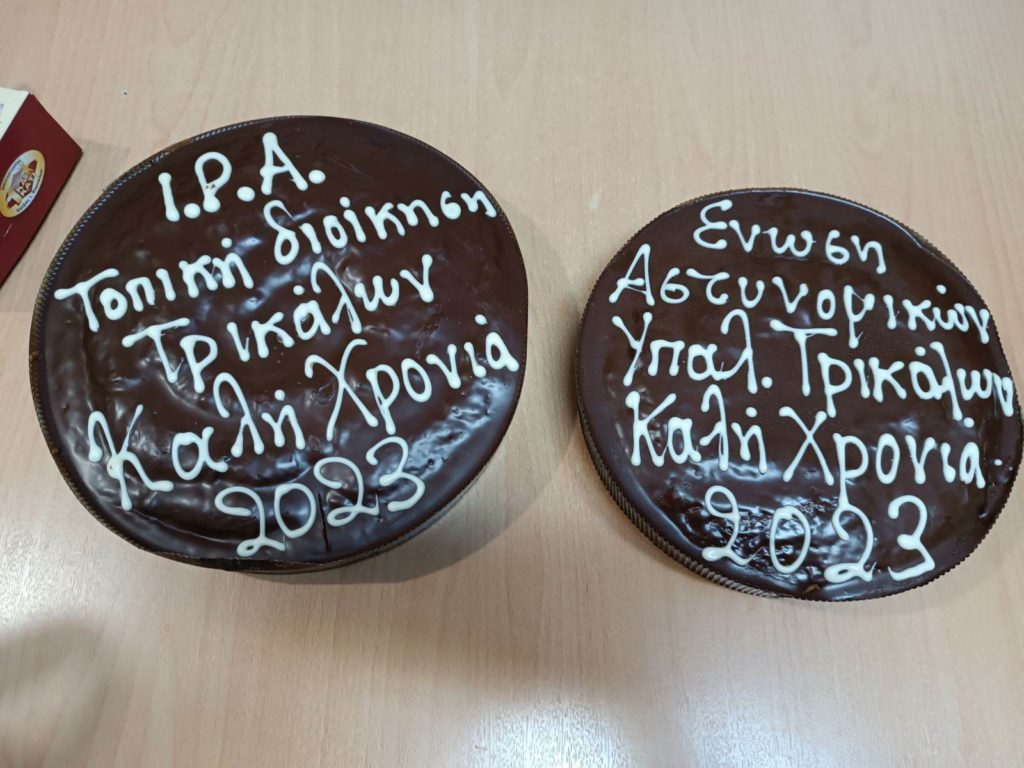 I.P.A.
Τοπική διοίκηση
Τρικάλων
Καλή Χρονιά
2023
Ενωση
Αστυνομικών
Υπαλ. Τρικάλων
Καλή Χρονιά.
2023